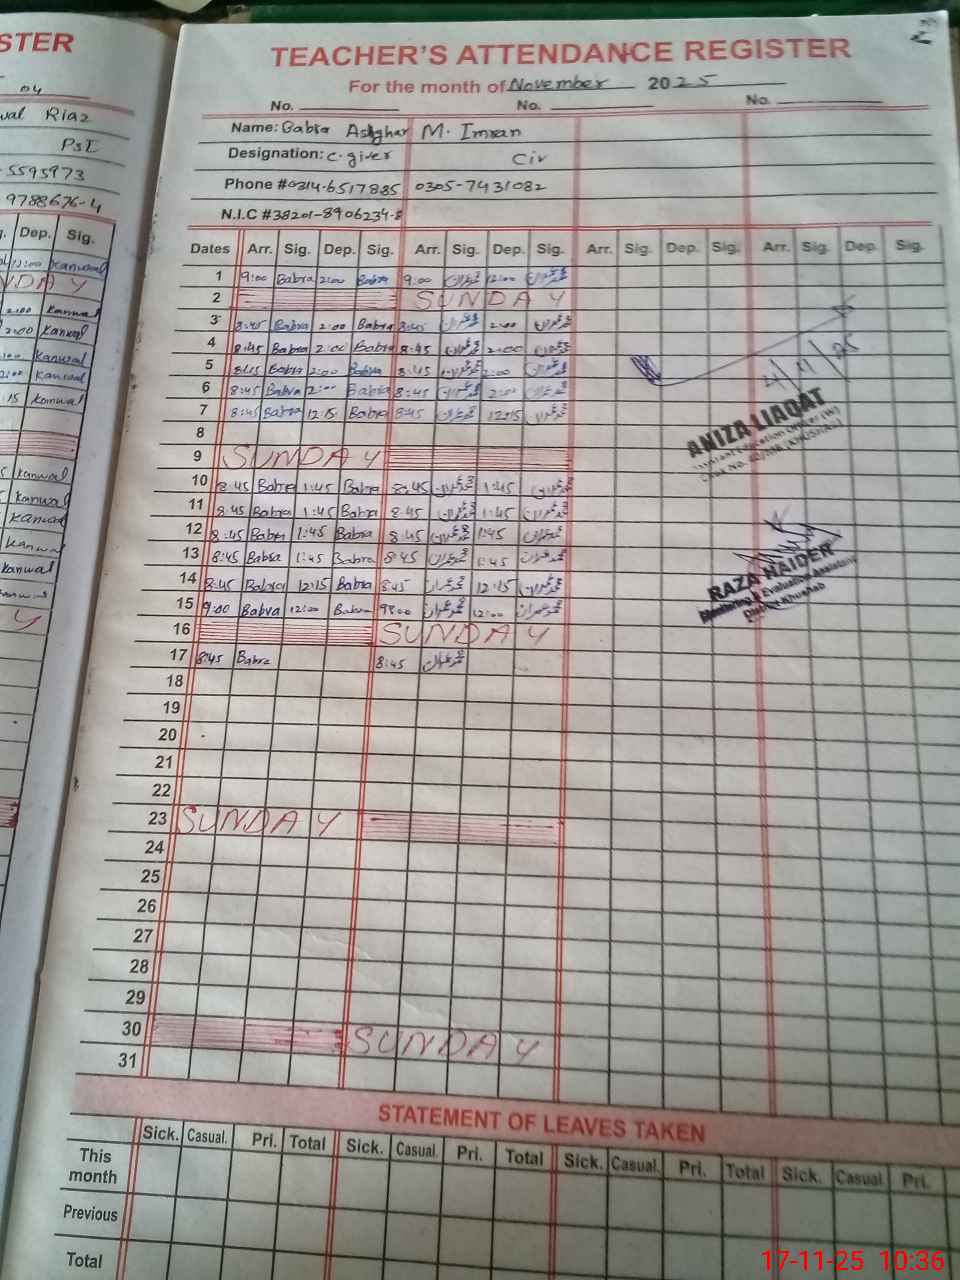 STER
04
Riaz
PST
5595973
9788676-4
Dep. Sig.
12:00 Kanwal
NDAY
2:00 Kanwal
2:00 Kanwal
:00 Kanwal
2:00 Kanwal
:15 Kanwal
Kanwal
Kanwal
Kanwal
Kanwal
Kanwal
TEACHER'S ATTENDANCE REGISTER
For the month of November 2025
No. No. No.
Name: Babra Asghar M. Imran
Designation: c-giver Civ
Phone # 0314-6517885 0305-7431082
N.I.C # 38201-8906234-8
Dates Arr. Sig. Dep. Sig. Arr. Sig. Dep. Sig. Arr. Sig. Dep. Sig. Arr. Sig. Dep. Sig.
1 9:00 Babra 2:00 Babra 9:00 محمد عمران 12:00 محمد عمران
2 SUNDAY
3 8:45 Babra 2:00 Babra 8:45 محمد عمران 2:00 محمد عمران
4 8:45 Babra 2:00 Babra 8:45 محمد عمران 2:00 محمد عمران
5 8:45 Babra 2:00 Babra 8:45 محمد عمران 2:00 محمد عمران
6 8:45 Babra 2:00 Babra 8:45 محمد عمران 2:00 محمد عمران
7 8:45 Babra 12:15 Babra 8:45 محمد عمران 12:15 محمد عمران
8
9 SUNDAY
10 8:45 Babra 1:45 Babra 8:45 محمد عمران 1:45 محمد عمران
11 8:45 Babra 1:45 Babra 8:45 محمد عمران 1:45 محمد عمران
12 8:45 Babra 1:45 Babra 8:45 محمد عمران 1:45 محمد عمران
13 8:45 Babra 1:45 Babra 8:45 محمد عمران 1:45 محمد عمران
14 8:45 Babra 12:15 Babra 8:45 محمد عمران 12:15 محمد عمران
15 9:00 Babra 12:00 Babra 9:00 محمد عمران 12:00 محمد عمران
16 SUNDAY
17 8:45 Babra 8:45 محمد عمران
18
19
20
21
22
23 SUNDAY
24
25
26
27
28
29
30 SUNDAY
31
4/11/25
ANIZA LIAQAT
Assistant Education Officer (W)
RAZA HAIDER
Monitoring & Evaluation Assistant
District Khushab
STATEMENT OF LEAVES TAKEN
Sick. Casual. Pri. Total Sick. Casual. Pri. Total Sick. Casual. Pri. Total Sick. Casual. Pri.
This month
Previous
Total
17-11-25 10:36